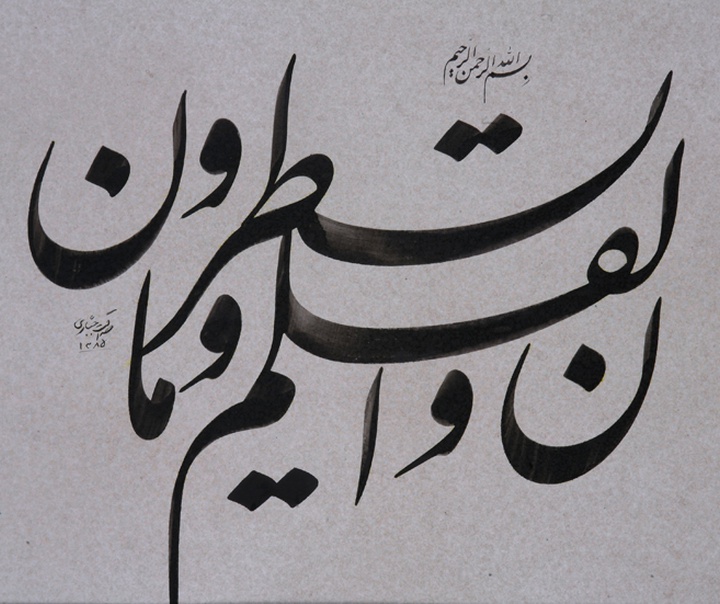 بسم الله الرحمن الرحیم
ن والقلم وما یسطرون
۱۳۸۵